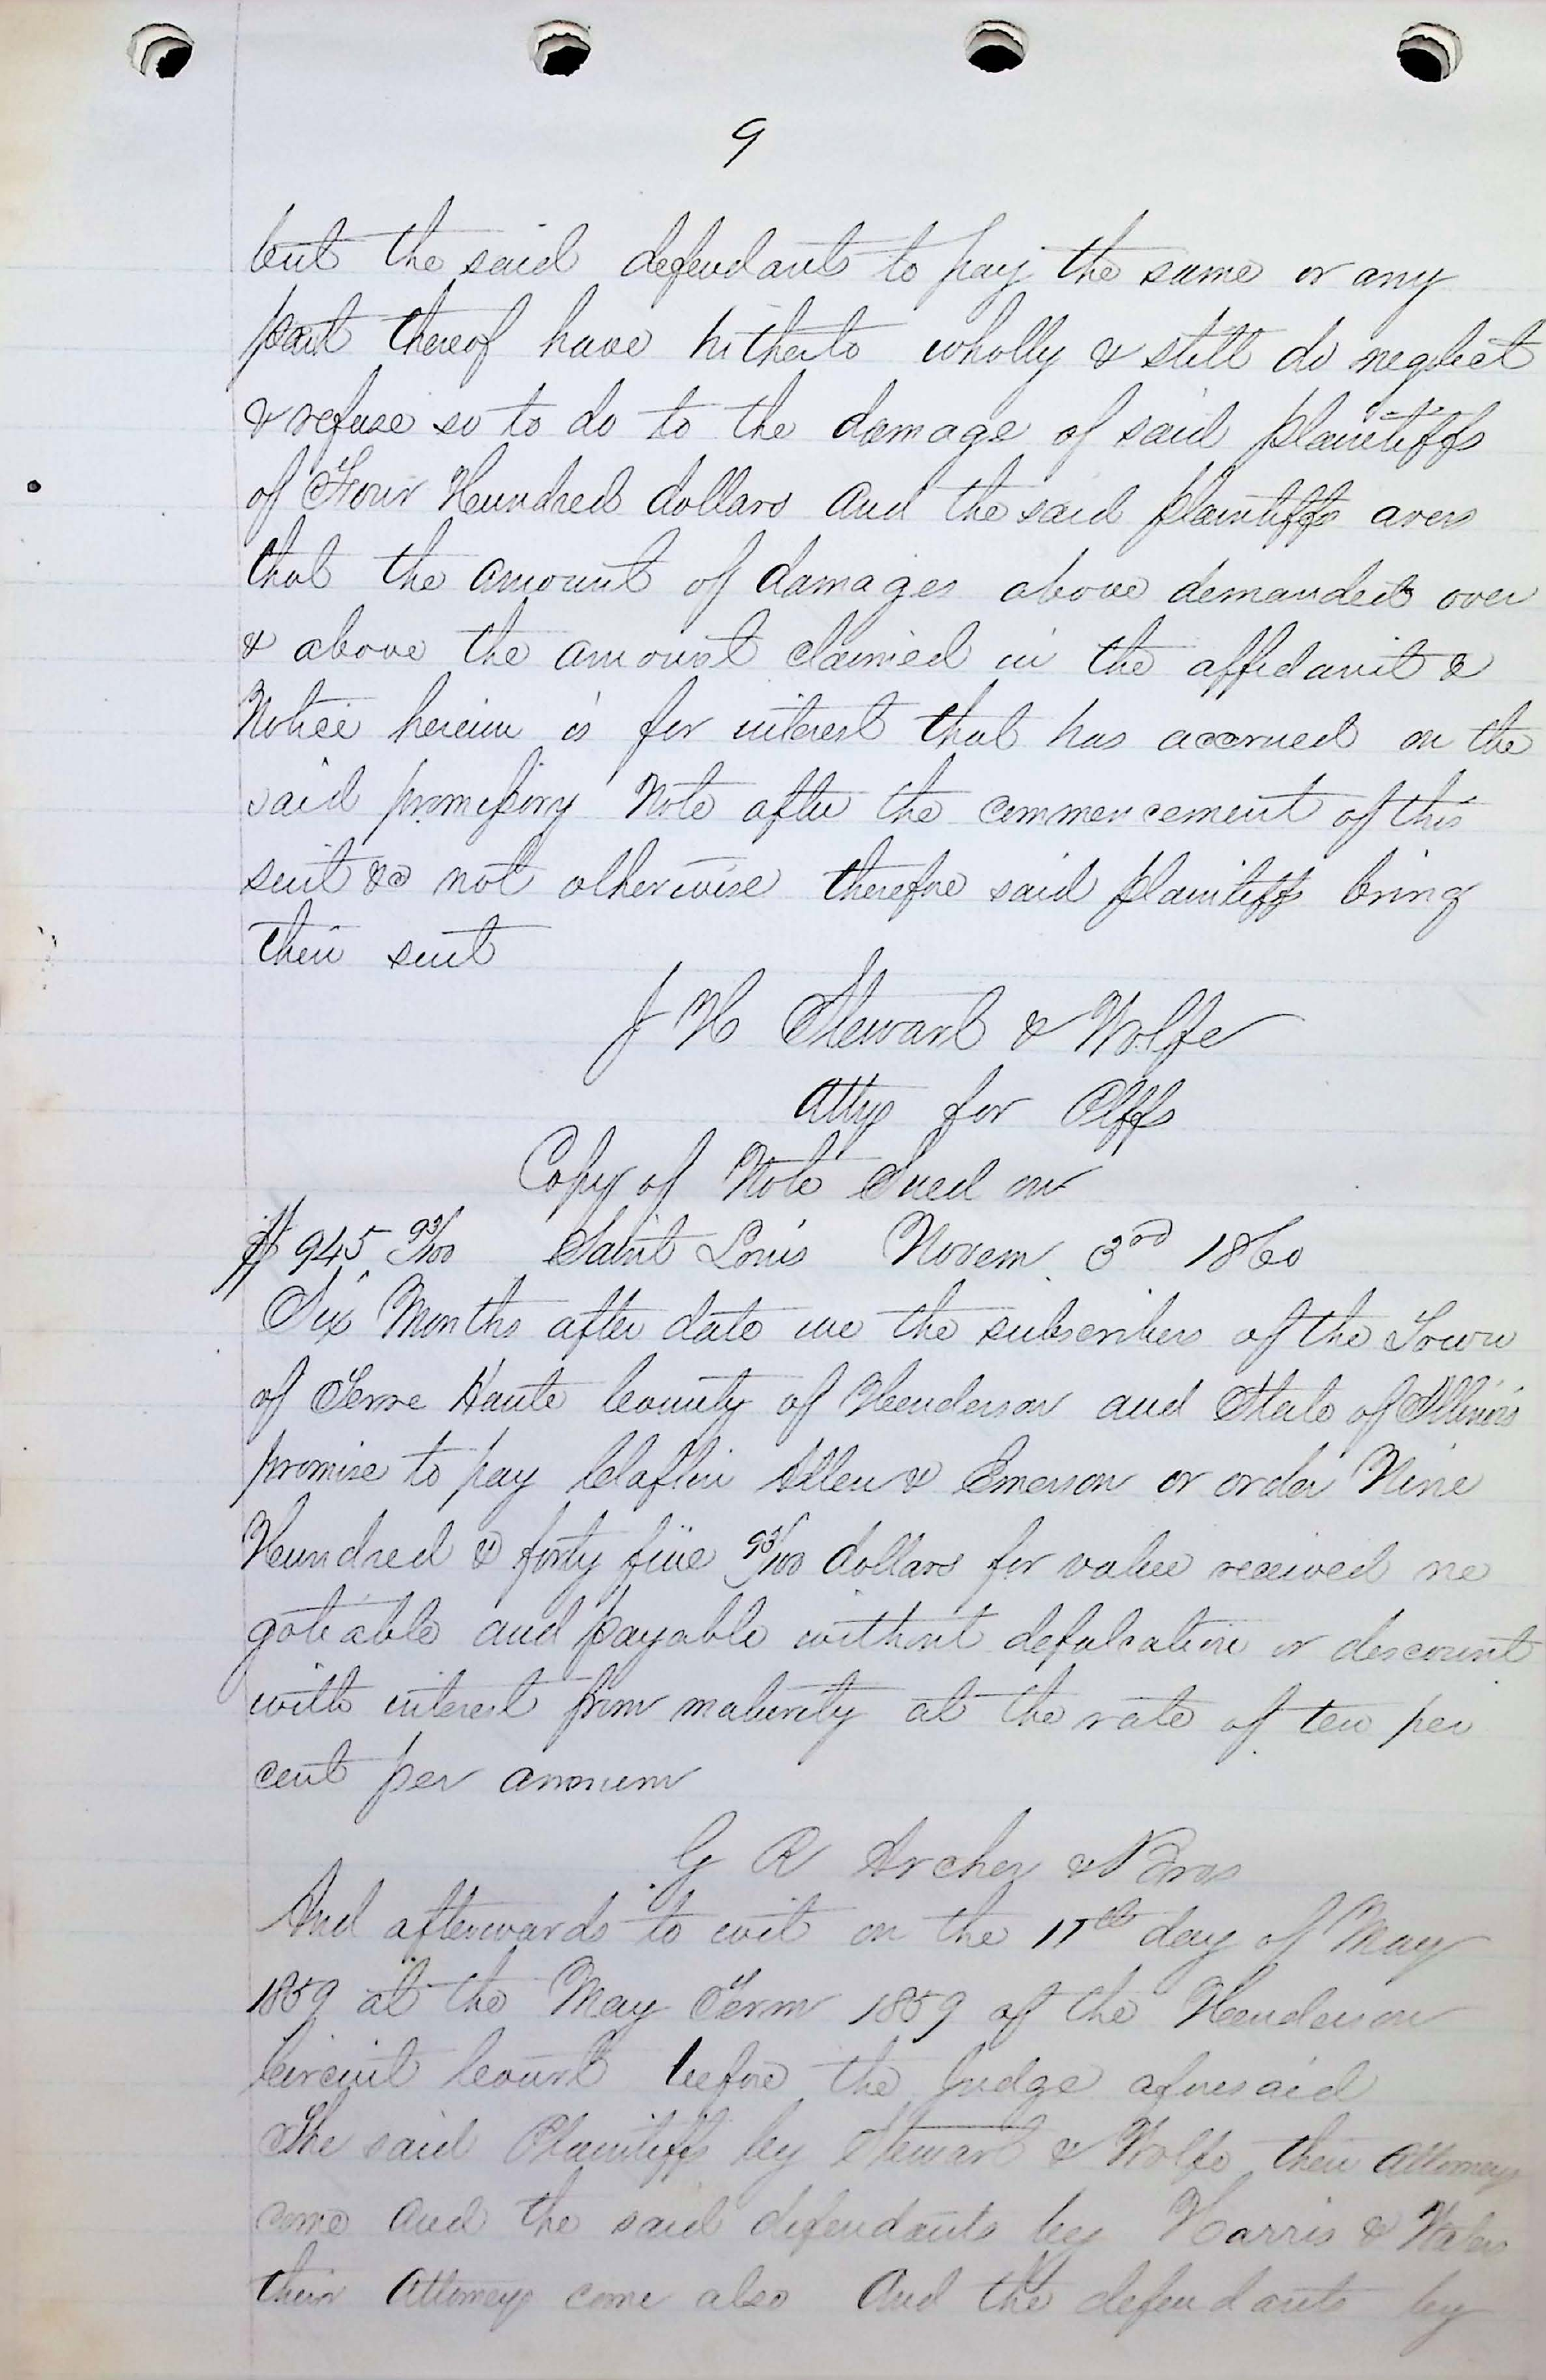 9
but the said defendants to pay the same or any
part thereof have hitherto wholly & still do neglect
& refuse so to do to the damage of said plaintiffs
of Four Hundred dollars and the said plaintiffs avers
that the amount of damages above demanded over
& above the amount claimed in the affidavit &
Notice herein is for interest that has accrued on the
said promissory Note after the commencement of this
suit & not otherwise therefore said plaintiffs bring
their suit
J H Stewart & Wolfe
Attys for Plffs
Copy of Note Sued on
$945 93/100 Saint Louis Novem. 3rd 1860
Six Months after date we the subscribers of the Town
of Terre Haute County of Henderson and State of Illinois
promise to pay Claflin Allen & Emerson or order Nine
Hundred & forty five 93/100 dollars for value received ne
gotiable and payable without defalcation or discount
with interest from maturity at the rate of ten per
cent per annum
G R Archer & Bros
And afterwards to wit on the 11th day of May
1859 at the May Term 1859 of the Henderson
Circuit Court before the Judge aforesaid
The said Plaintiffs by Stewart & Wolfe their Attorneys
come and the said defendants by Harris &
their Attorneys come also And the defendants by